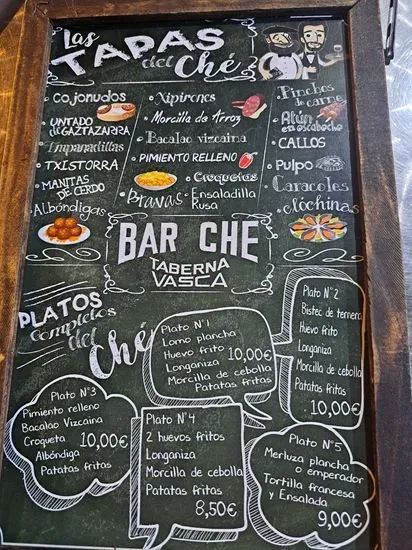 Las
TAPAS
del Ché
• Cojonudos
• UNTADO
de GAZTAZARRA
• Empanadillas
• TXISTORRA
• MANITAS
DE CERDO
• Albóndigas
• Xipirones
• Morcilla de Arroz
• Bacalao vizcaina
• PIMIENTO RELLENO
• Croquetas
• Bravas
• Ensaladilla
Rusa
• Pinchos
de carne
• Atún
en escabeche
• CALLOS
• Pulpo
• Caracoles
• Clóchinas
BAR CHE
TABERNA
VASCA
PLATOS
Completos
del
Ché
Plato N°1
Lomo plancha
Huevo frito
Longaniza
Morcilla de cebolla
Patatas fritas
10,00€
Plato N°2
Bistec de ternera
Huevo frito
Longaniza
Morcilla de cebolla
Patatas fritas
10,00€
Plato N°3
Pimiento relleno
Bacalao Vizcaina
Croqueta
Albóndiga
Patatas fritas
10,00€
Plato N°4
2 huevos fritos
Longaniza
Morcilla de cebolla
Patatas fritas
8,50€
Plato N°5
Merluza plancha
o emperador
Tortilla francesa
y Ensalada
9,00€